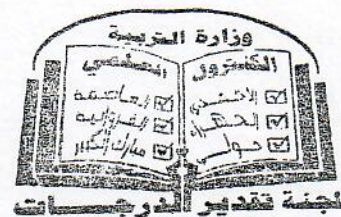 وزارة التربية
الكنترول العلمي
الاحمدي
الجهراء
حولي
العاصمة
الفروانية
مبارك الكبير
لجنة تقدير الدرجات